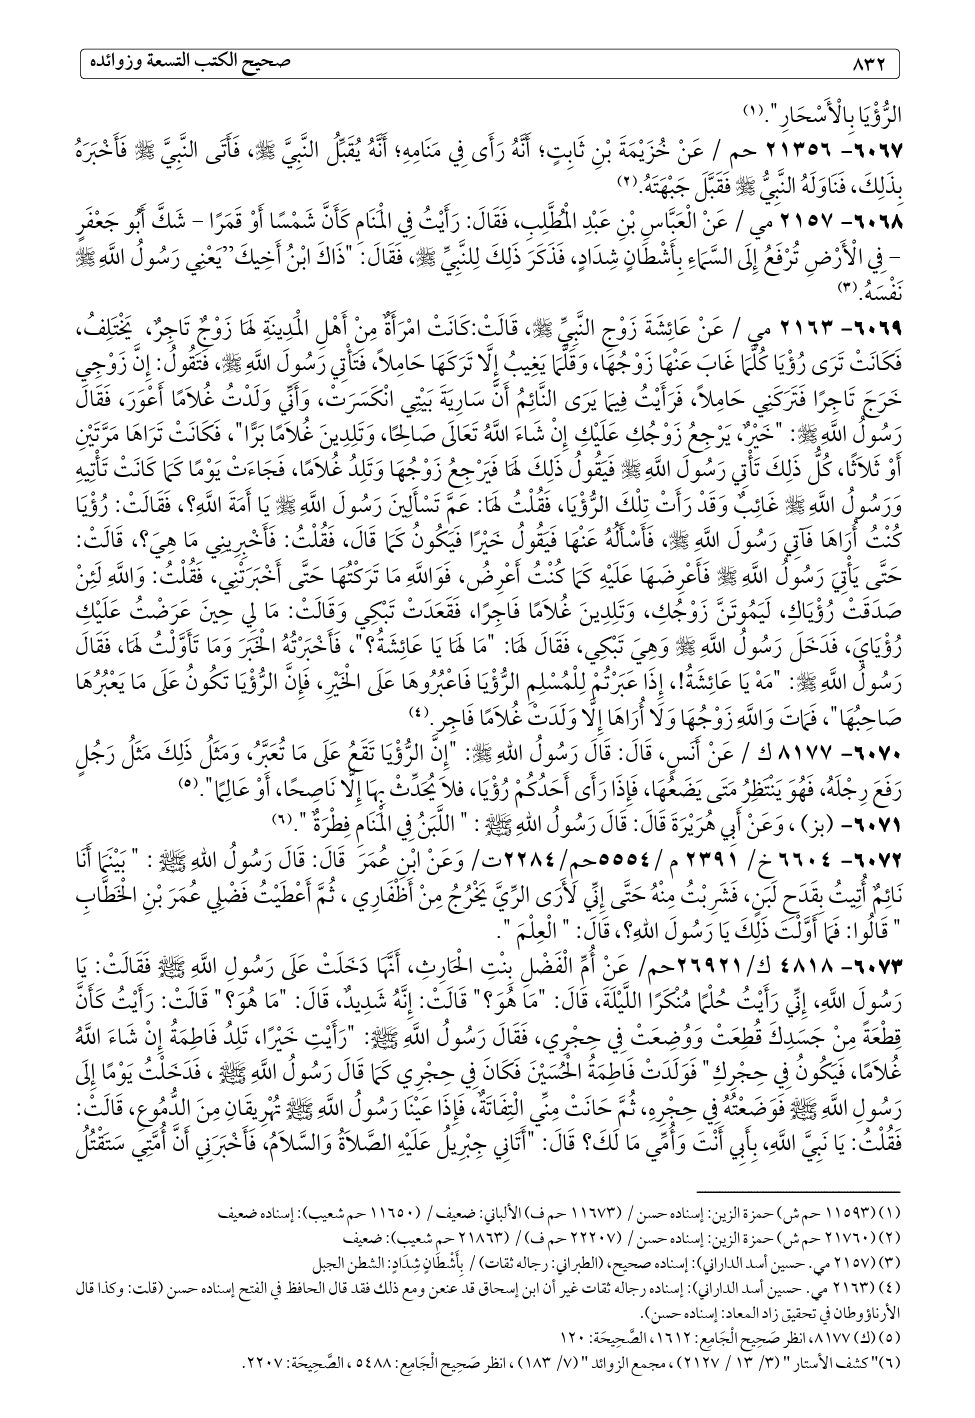 ٨٣٢ صحيح الكتب التسعة وزوائده
الرُّؤْيَا بِالْأَسْحَارِ".(١)
٦٠٦٧- ٢١٣٥٦ حم / عَنْ خُزَيْمَةَ بْنِ ثَابِتٍ؛ أَنَّهُ رَأَى فِي مَنَامِهِ؛ أَنَّهُ يُقَبِّلُ النَّبِيَّ ﷺ، فَأَتَى النَّبِيَّ ﷺ فَأَخْبَرَهُ
بِذَلِكَ، فَنَاوَلَهُ النَّبِيُّ ﷺ فَقَبَّلَ جَبْهَتَهُ.(٢)
٦٠٦٨- ٢١٥٧ مي / عَنْ الْعَبَّاسِ بْنِ عَبْدِ الْمُطَّلِبِ، فَقَالَ: رَأَيْتُ فِي الْمَنَامِ كَأَنَّ شَمْسًا أَوْ قَمَرًا – شَكَّ أَبُو جَعْفَرٍ
– فِي الْأَرْضِ تُرْفَعُ إِلَى السَّمَاءِ بِأَشْطَانٍ شِدَادٍ، فَذَكَرَ ذَلِكَ لِلنَّبِيِّ ﷺ، فَقَالَ: "ذَاكَ ابْنُ أَخِيكَ’’يَعْنِي رَسُولُ اللَّهِ ﷺ
نَفْسَهُ.(٣)
٦٠٦٩- ٢١٦٣ مي / عَنْ عَائِشَةَ زَوْجِ النَّبِيِّ ﷺ، قَالَتْ:كَانَتْ امْرَأَةٌ مِنْ أَهْلِ الْمَدِينَةِ لَهَا زَوْجٌ تَاجِرٌ، يَخْتَلِفُ،
فَكَانَتْ تَرَى رُؤْيَا كُلَّمَا غَابَ عَنْهَا زَوْجُهَا، وَقَلَّمَا يَغِيبُ إِلَّا تَرَكَهَا حَامِلاً، فَتَأْتِي رَسُولَ اللَّهِ ﷺ، فَتَقُولُ: إِنَّ زَوْجِي
خَرَجَ تَاجِرًا فَتَرَكَنِي حَامِلاً، فَرَأَيْتُ فِيمَا يَرَى النَّائِمُ أَنَّ سَارِيَةَ بَيْتِي انْكَسَرَتْ، وَأَنِّي وَلَدْتُ غُلَامًا أَعْوَرَ، فَقَالَ
رَسُولُ اللَّهِ ﷺ: "خَيْرٌ، يَرْجِعُ زَوْجُكِ عَلَيْكِ إِنْ شَاءَ اللَّهُ تَعَالَى صَالِحًا، وَتَلِدِينَ غُلَامًا بَرًّا"، فَكَانَتْ تَرَاهَا مَرَّتَيْنِ
أَوْ ثَلَاثًا، كُلُّ ذَلِكَ تَأْتِي رَسُولَ اللَّهِ ﷺ فَيَقُولُ ذَلِكَ لَهَا فَيَرْجِعُ زَوْجُهَا وَتَلِدُ غُلَامًا، فَجَاءَتْ يَوْمًا كَمَا كَانَتْ تَأْتِيهِ
وَرَسُولُ اللَّهِ ﷺ غَائِبٌ وَقَدْ رَأَتْ تِلْكَ الرُّؤْيَا، فَقُلْتُ لَهَا: عَمَّ تَسْأَلِينَ رَسُولَ اللَّهِ ﷺ يَا أَمَةَ اللَّهِ؟، فَقَالَتْ: رُؤْيَا
كُنْتُ أُرَاهَا فَآتِي رَسُولَ اللَّهِ ﷺ، فَأَسْأَلُهُ عَنْهَا فَيَقُولُ خَيْرًا فَيَكُونُ كَمَا قَالَ، فَقُلْتُ: فَأَخْبِرِينِي مَا هِيَ؟، قَالَتْ:
حَتَّى يَأْتِيَ رَسُولُ اللَّهِ ﷺ فَأَعْرِضَهَا عَلَيْهِ كَمَا كُنْتُ أَعْرِضُ، فَوَاللَّهِ مَا تَرَكْتُهَا حَتَّى أَخْبَرَتْنِي، فَقُلْتُ: وَاللَّهِ لَئِنْ
صَدَقَتْ رُؤْيَاكِ، لَيَمُوتَنَّ زَوْجُكِ، وَتَلِدِينَ غُلَامًا فَاجِرًا، فَقَعَدَتْ تَبْكِي وَقَالَتْ: مَا لِي حِينَ عَرَضْتُ عَلَيْكِ
رُؤْيَايَ، فَدَخَلَ رَسُولُ اللَّهِ ﷺ وَهِيَ تَبْكِي، فَقَالَ لَهَا: "مَا لَهَا يَا عَائِشَةُ؟"، فَأَخْبَرْتُهُ الْخَبَرَ وَمَا تَأَوَّلْتُ لَهَا، فَقَالَ
رَسُولُ اللَّهِ ﷺ: "مَهْ يَا عَائِشَةُ!، إِذَا عَبَرْتُمْ لِلْمُسْلِمِ الرُّؤْيَا فَاعْبُرُوهَا عَلَى الْخَيْرِ، فَإِنَّ الرُّؤْيَا تَكُونُ عَلَى مَا يَعْبُرُهَا
صَاحِبُهَا"، فَمَاتَ وَاللَّهِ زَوْجُهَا وَلَا أُرَاهَا إِلَّا وَلَدَتْ غُلَامًا فَاجِرٍ.(٤)
٦٠٧٠- ٨١٧٧ ك / عَنْ أَنَسٍ، قَالَ: قَالَ رَسُولُ اللهِ ﷺ: "إِنَّ الرُّؤْيَا تَقَعُ عَلَى مَا تُعَبَّرُ، وَمَثَلُ ذَلِكَ مَثَلُ رَجُلٍ
رَفَعَ رِجْلَهُ، فَهُوَ يَنْتَظِرُ مَتَى يَضَعُهَا، فَإِذَا رَأَى أَحَدُكُمْ رُؤْيَا، فَلاَ يُحَدِّثْ بِهَا إِلَّا نَاصِحًا، أَوْ عَالِمًا".(٥)
٦٠٧١- (بز) ، وَعَنْ أَبِي هُرَيْرَةَ قَالَ: قَالَ رَسُولُ اللهِ ﷺ : " اللَّبَنُ فِي الْمَنَامِ فِطْرَةٌ ".(٦)
٦٠٧٢- ٦٦٠٤خ/ ٢٣٩١ م /٥٥٥٤حم/٢٢٨٤ت/ وَعَنْ ابْنِ عُمَرَ قَالَ: قَالَ رَسُولُ اللهِ ﷺ : " بَيْنَمَا أَنَا
نَائِمٌ أُتِيتُ بِقَدَحِ لَبَنٍ، فَشَرِبْتُ مِنْهُ حَتَّى إِنِّي لَأَرَى الرِّيَّ يَخْرُجُ مِنْ أَظْفَارِي ، ثُمَّ أَعْطَيْتُ فَضْلِي عُمَرَ بْنِ الْخَطَّابِ
" قَالُوا: فَمَا أَوَّلْتَ ذَلِكَ يَا رَسُولَ اللهِ؟، قَالَ: " الْعِلْمَ ".
٦٠٧٣- ٤٨١٨ ك/٢٦٩٢١حم/ عَنْ أُمِّ الْفَضْلِ بِنْتِ الْحَارِثِ، أَنَّهَا دَخَلَتْ عَلَى رَسُولِ اللَّهِ ﷺ فَقَالَتْ: يَا
رَسُولَ اللَّهِ، إِنِّي رَأَيْتُ حُلْمًا مُنْكَرًا اللَّيْلَةَ، قَالَ: "مَا هُوَ؟" قَالَتْ: إِنَّهُ شَدِيدٌ، قَالَ: "مَا هُوَ؟" قَالَتْ: رَأَيْتُ كَأَنَّ
قِطْعَةً مِنْ جَسَدِكَ قُطِعَتْ وَوُضِعَتْ فِي حِجْرِي، فَقَالَ رَسُولُ اللَّهِ ﷺ: "رَأَيْتِ خَيْرًا، تَلِدُ فَاطِمَةُ إِنْ شَاءَ اللَّهُ
غُلَامًا، فَيَكُونُ فِي حِجْرِكِ" فَوَلَدَتْ فَاطِمَةُ الْحُسَيْنَ فَكَانَ فِي حِجْرِي كَمَا قَالَ رَسُولُ اللَّهِ ﷺ ، فَدَخَلْتُ يَوْمًا إِلَى
رَسُولِ اللَّهِ ﷺ فَوَضَعْتُهُ فِي حِجْرِهِ، ثُمَّ حَانَتْ مِنِّي الْتِفَاتَةٌ، فَإِذَا عَيْنَا رَسُولُ اللَّهِ ﷺ تُهْرِيقَانِ مِنَ الدُّمُوعِ، قَالَتْ:
فَقُلْتُ: يَا نَبِيَّ اللَّهِ، بِأَبِي أَنْتَ وَأُمِّي مَا لَكَ؟ قَالَ: "أَتَانِي جِبْرِيلُ عَلَيْهِ الصَّلاَةُ وَالسَّلاَمُ، فَأَخْبَرَنِي أَنَّ أُمَّتِي سَتَقْتُلُ
(١) (١١٥٩٣ حم ش) حمزة الزين: إسناده حسن / (١١٦٧٣ حم ف) الألباني: ضعيف / (١١٦٥٠ حم شعيب): إسناده ضعيف
(٢) (٢١٧٦٠ حم ش) حمزة الزين: إسناده حسن / (٢٢٢٠٧ حم ف) / (٢١٨٦٣ حم شعيب): ضعيف
(٣) (٢١٥٧ مي. حسين أسد الداراني): إسناده صحيح، (الطبراني: رجاله ثقات) / بِأَشْطَانٍ شِدَادٍ: الشطن الجبل
(٤) (٢١٦٣ مي. حسين أسد الداراني): إسناده رجاله ثقات غير أن ابن إسحاق قد عنعن ومع ذلك فقد قال الحافظ في الفتح إسناده حسن (قلت: وكذا قال
الأرناؤوطان في تحقيق زاد المعاد: إسناده حسن).
(٥) (ك) ٨١٧٧، انظر صَحِيح الْجَامِع: ١٦١٢، الصَّحِيحَة: ١٢٠
(٦)" كشف الأستار " (٣/ ١٣ / ٢١٢٧) ، مجمع الزوائد " (٧/ ١٨٣) ، انظر صَحِيح الْجَامِع: ٥٤٨٨ ، الصَّحِيحَة: ٢٢٠٧.